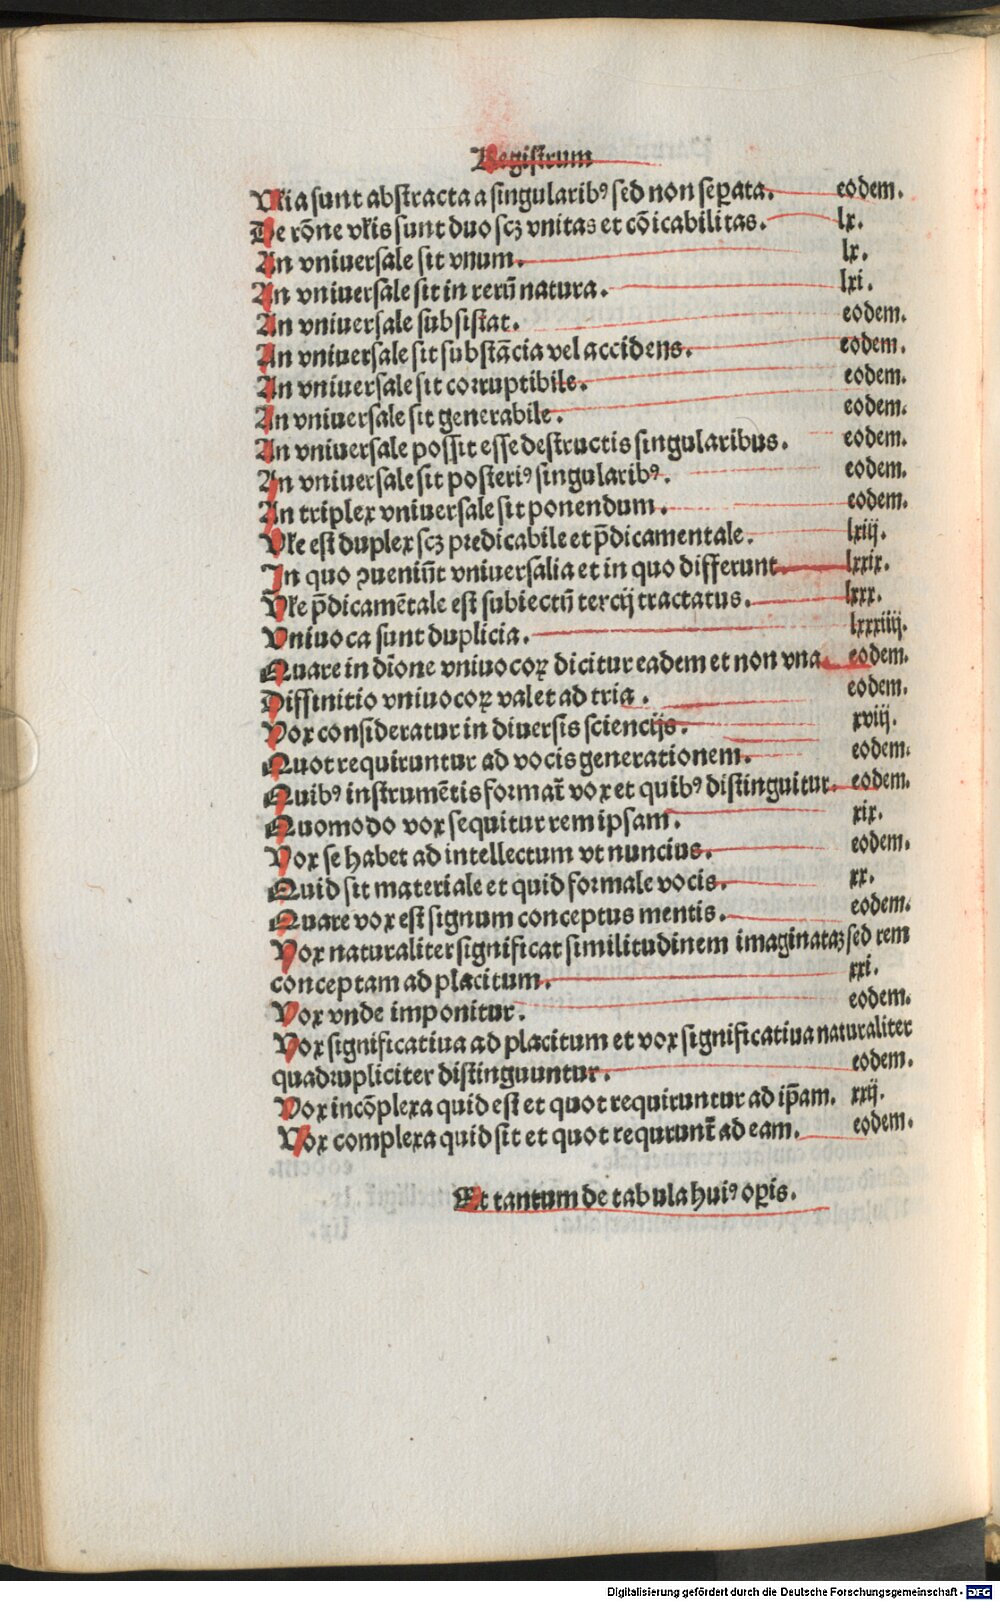 Registrum
Vlia sunt abstracta a singularibꝰ sed non seꝑata. eodem.
De rōne vlis sunt duo scꝫ vnitas et cōicabilitas. lx.
An vniuersale sit vnum. lx.
An vniuersale sit in rerū natura. lxi.
An vniuersale subsistat. eodem.
An vniuersale sit substācia vel accidens. eodem.
An vniuersale sit corruptibile. eodem.
An vniuersale sit generabile. eodem.
An vniuersale possit esse destructis singularibus. eodem.
An vniuersale sit posteriꝰ singularibꝰ. eodem.
An triplex vniuersale sit ponendum. eodem.
Vle est duplex scꝫ predicabile et p̄dicamentale. lxiij.
In quo ꝯueniūt vniuersalia et in quo differunt lxxix.
Vle p̄dicamētale est subiectū tercij tractatus. lxxx.
Vniuoca sunt duplicia. lxxxiiij.
Quare in dīone vniuocoꝝ dicitur eadem et non vna eodem.
Diffinitio vniuocoꝝ valet ad tria. eodem.
Vox consideratur in diuersis sciencijs. xviij.
Quot requiruntur ad vocis generationem. eodem.
Quibꝰ instrumētis format̄ vox et quibꝰ distinguitur. eodem.
Quomodo vox sequitur rem ipsam. xix.
Vox se habet ad intellectum vt nuncius. eodem.
Quid sit materiale et quid formale vocis. xx.
Quare vox est signum conceptus mentis. eodem.
Vox naturaliter significat similitudinem imaginataꝫ sed rem
conceptam ad placitum. xxi.
Vox vnde imponitur. eodem.
Vox significatiua ad placitum et vox significatiua naturaliter
quadrupliciter distinguuntur. eodem.
Vox incōplexa quid est et quot requiruntur ad ip̄am. xxij.
Vox complexa quid sit et quot requrunt̄ ad eam. eodem.
Et tantum de tabula huiꝰ oꝑis.
Digitalisierung gefördert durch die Deutsche Forschungsgemeinschaft - DFG